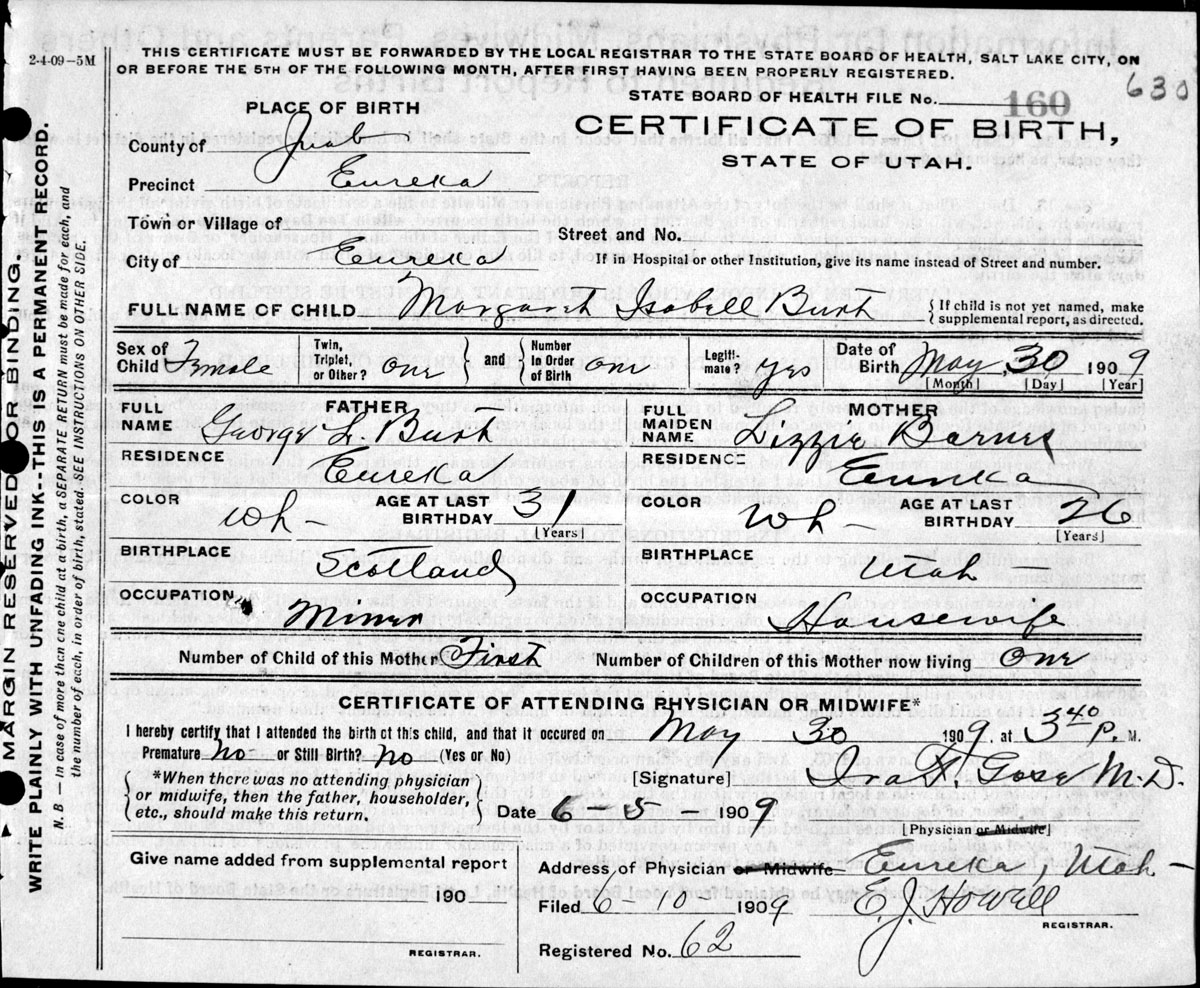 2-4-09-5M
THIS CERTIFICATE MUST BE FORWARDED BY THE LOCAL REGISTRAR TO THE STATE BOARD OF HEALTH, SALT LAKE CITY, ON
OR BEFORE THE 5TH OF THE FOLLOWING MONTH, AFTER FIRST HAVING BEEN PROPERLY REGISTERED.
630
STATE BOARD OF HEALTH FILE No. 160
PLACE OF BIRTH
CERTIFICATE OF BIRTH,
STATE OF UTAH.
County of Juab
Precinct Eureka
Town or Village of
Street and No.
City of Eureka
If in Hospital or other Institution, give its name instead of Street and number.
FULL NAME OF CHILD Margaret Isabell Burt
{If child is not yet named, make
supplemental report, as directed.
Sex of Child Female
Twin, Triplet, or Other? one } and { Number In Order of Birth one
Legiti-mate? yes
Date of Birth May 30 1909
[Month] [Day] [Year]
FATHER
FULL NAME George L. Burt
RESIDENCE Eureka
COLOR Wh- AGE AT LAST BIRTHDAY 31
[Years]
BIRTHPLACE Scotland
OCCUPATION Miner
MOTHER
FULL MAIDEN NAME Lizzie Barnes
RESIDENCE Eureka
COLOR Wh- AGE AT LAST BIRTHDAY 26
[Years]
BIRTHPLACE Utah
OCCUPATION Housewife
Number of Child of this Mother First Number of Children of this Mother now living one
CERTIFICATE OF ATTENDING PHYSICIAN OR MIDWIFE*
I hereby certify that I attended the birth of this child, and that it occured on May 30 1909. at 3 40 P. M.
Premature? No- or Still Birth? No (Yes or No)
*When there was no attending physician
or midwife, then the father, householder,
etc., should make this return.
[Signature] M.D.
Date 6-5-1909
[Physician or Midwife]
Give name added from supplemental report
190
REGISTRAR.
Address of Physician or Midwife Eureka, Utah-
Filed 6-10-1909 E. J. Howell
REGISTRAR.
Registered No. 62
MARGIN RESERVED FOR BINDING.
WRITE PLAINLY WITH UNFADING INK--THIS IS A PERMANENT RECORD.
N. B.—in case of more then one child at a birth, a SEPARATE RETURN must be made for each, and
the number of each, in order of birth, stated. SEE INSTRUCTIONS ON OTHER SIDE.